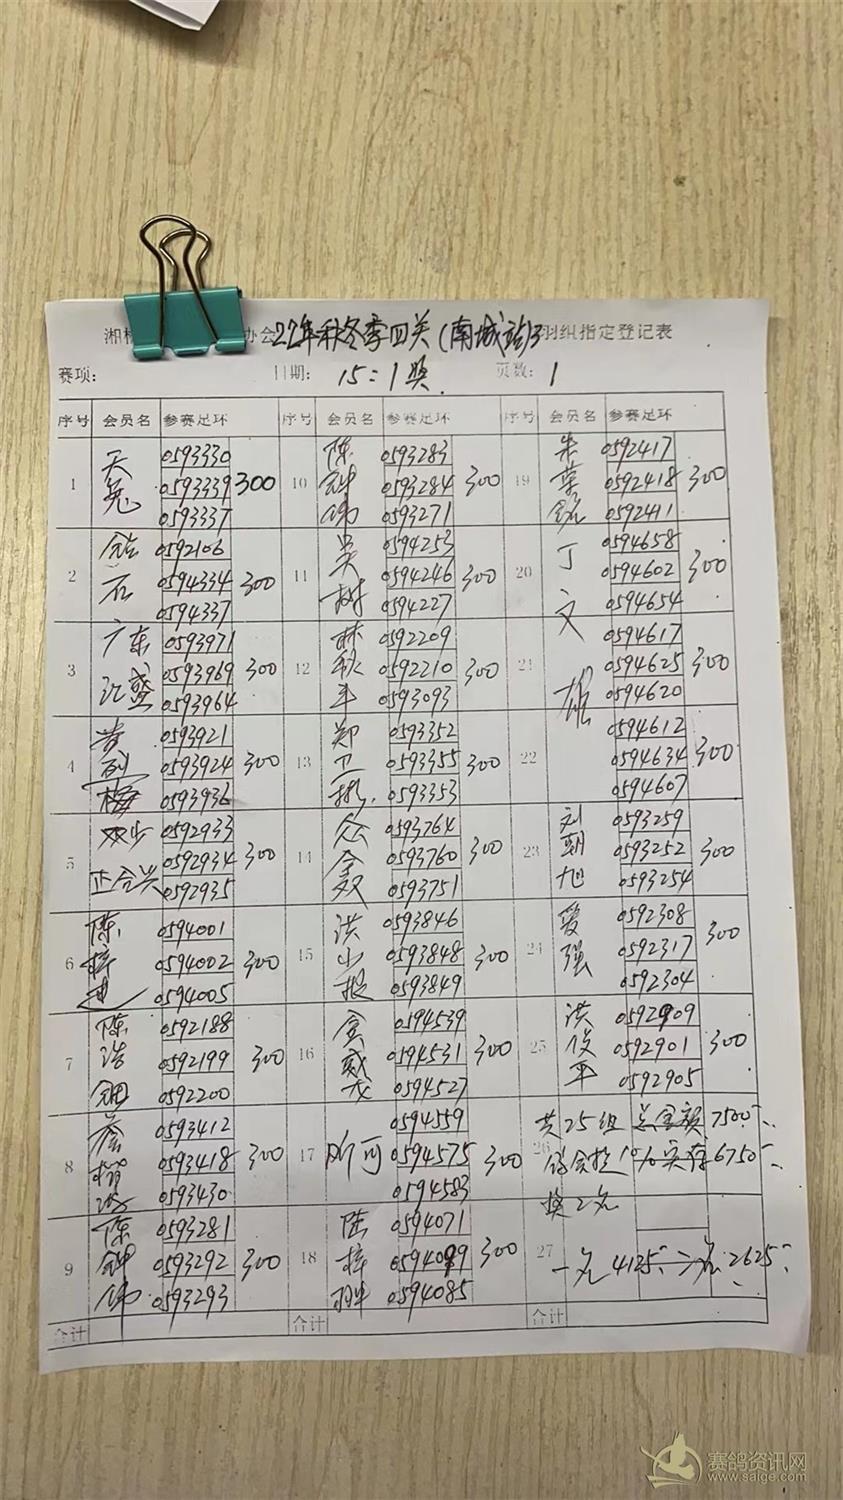 湘 办会 22年秋冬季四关(南城站)3羽组指定登记表
赛项: 日期: 15:1奖 页数: 1
序号 会员名 参赛足环 序号 会员名 参赛足环 序号 会员名 参赛足环
1 天兔 0593330 0593339 0593337 300
2 钻石 0592106 0594334 0594337 300
3 广东汇盛 0593971 0593969 0593964 300
4 黄列梅 0593921 0593924 0593936 300
5 正合兴 0592933 0592934 0592935 300
6 陈梓 0594001 0594002 0594005 300
7 陈浩钿 0592188 0592199 0592200 300
8 0593412 0593418 0593430 300
9 陈钟伟 0593281 0593292 0593293 300
合计
10 陈钟伟 0593283 0593284 0593271 300
11 吴树 0594253 0594246 0594227 300
12 林秋平 0592209 0592210 0593093 300
13 郑卫彬 0593352 0593355 0593353 300
14 众鑫双 0593764 0593760 0593751 300
15 洪少振 0593846 0593848 0593849 300
16 金威龙 0594539 0594531 0594527 300
17 昕可 0594559 0594575 0594583 300
18 陆梓翀 0594071 0594099 0594085 300
合计
19 朱荣 0592417 0592418 0592411 300
20 丁文雄 0594658 0594602 0594654 300
21 0594617 0594625 0594620 300
22 0594612 0594634 0594607 300
23 刘朝旭 0593259 0593252 0593254 300
24 爱强 0592308 0592317 0592304 300
25 洪俊平 0592909 0592901 0592905 300
26 共25组 总金额7500
鸽会抽10%实存6750
奖2名
27 一名4125 二名2625
合计
赛鸽资讯网
www.saige.com